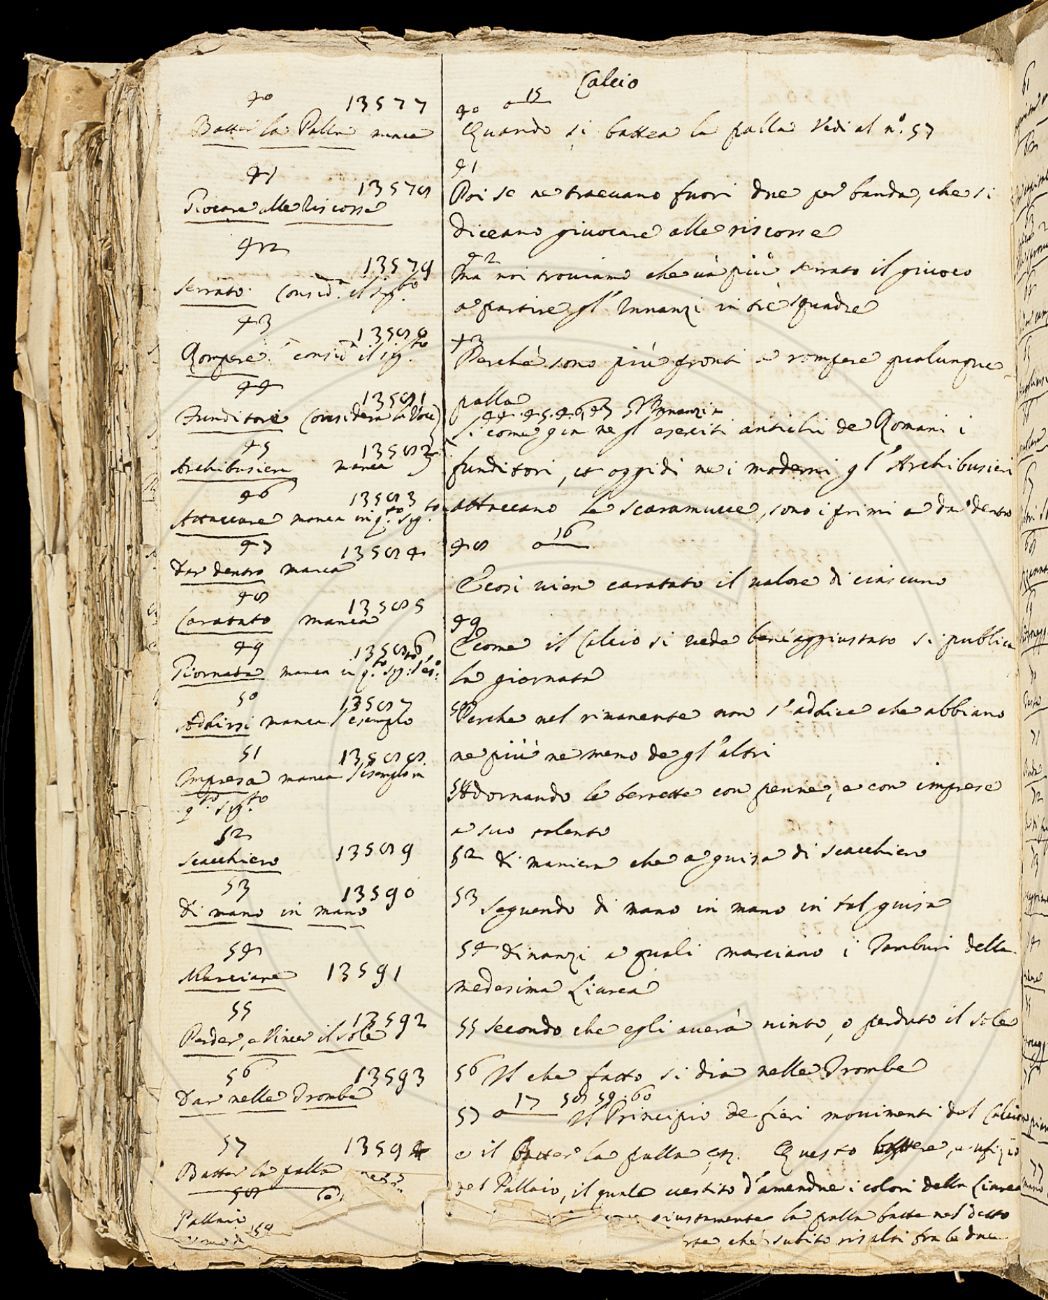 Calcio
40 13577
Batter la Palla manca
40 15
Quando si battea la palla Vedi al n.° 57
41 13578
Giocare alle riscosse
41
Poi se ne traevano fuori due per banda, che si
diceano giuocare alle riscosse
42 13579
Serrato. Consid.ª il sig.to
42
Ma noi troviamo che và più serrato il giuoco
a partire gl'Innanzi in trè squadre
43 13580
Rompere. consid.ª il sig.to
43
Perchè sono più pronti a rompere qualunque
palla
44 13581
Funditore (considera la Voce)
44. 45. 46. 47 Innanzi
Si come già ne gl'eserciti antichi de Romani i
45 13582
Archibusieri manca
funditori, et oggidi ne i moderni gl'Archibusieri
46 13583
Attaccare manca in q.to sig.to
attaccano le scaramucce, sono i primi a dar dentro
47 13584
Dar dentro manca
48 16
48 13585
Caratato manca
E cosi vien caratato il valore di ciascuno
49 13586
Giornata manca in q.to sig.to
49
E come il Calcio si vede bene aggiustato si publica
la giornata
50 13587
Addirsi manca l'esemplo
50 Perche nel rimanente non s'addice che abbiano
ne più ne meno de gl'altri
51 13588.
Impresa manca l'esemplo in
q.to sig.to
51 Adornando le berrette con penne, e con imprese
a suo talento
52
Scacchiero 13589
52 Di maniera che a guisa di scacchiero
53 13590
Di mano in mano
53 Seguendo di mano in mano in tal guisa
54
Marciare 13591
54 Dinanzi a quali marciano i Tamburi della
medesima Livrea
55 13592
Perder, e Vincer il Sole
55 Secondo che egli averà vinto, o perduto il sole
56 13593
Dar nelle Trombe
56 Il che fatto si dia nelle Trombe
57 17 58 59. 60
Il Principio de fieri movimenti del Calcio
57 13594
Batter la palla
e il batter la palla etc. Questo battere, e ufizio
58
Pallaio
del Pallaio, il quale vestito d'amendue i colori della Livrea
giustamente la palla batte nel detto
che subito risalti fra le due